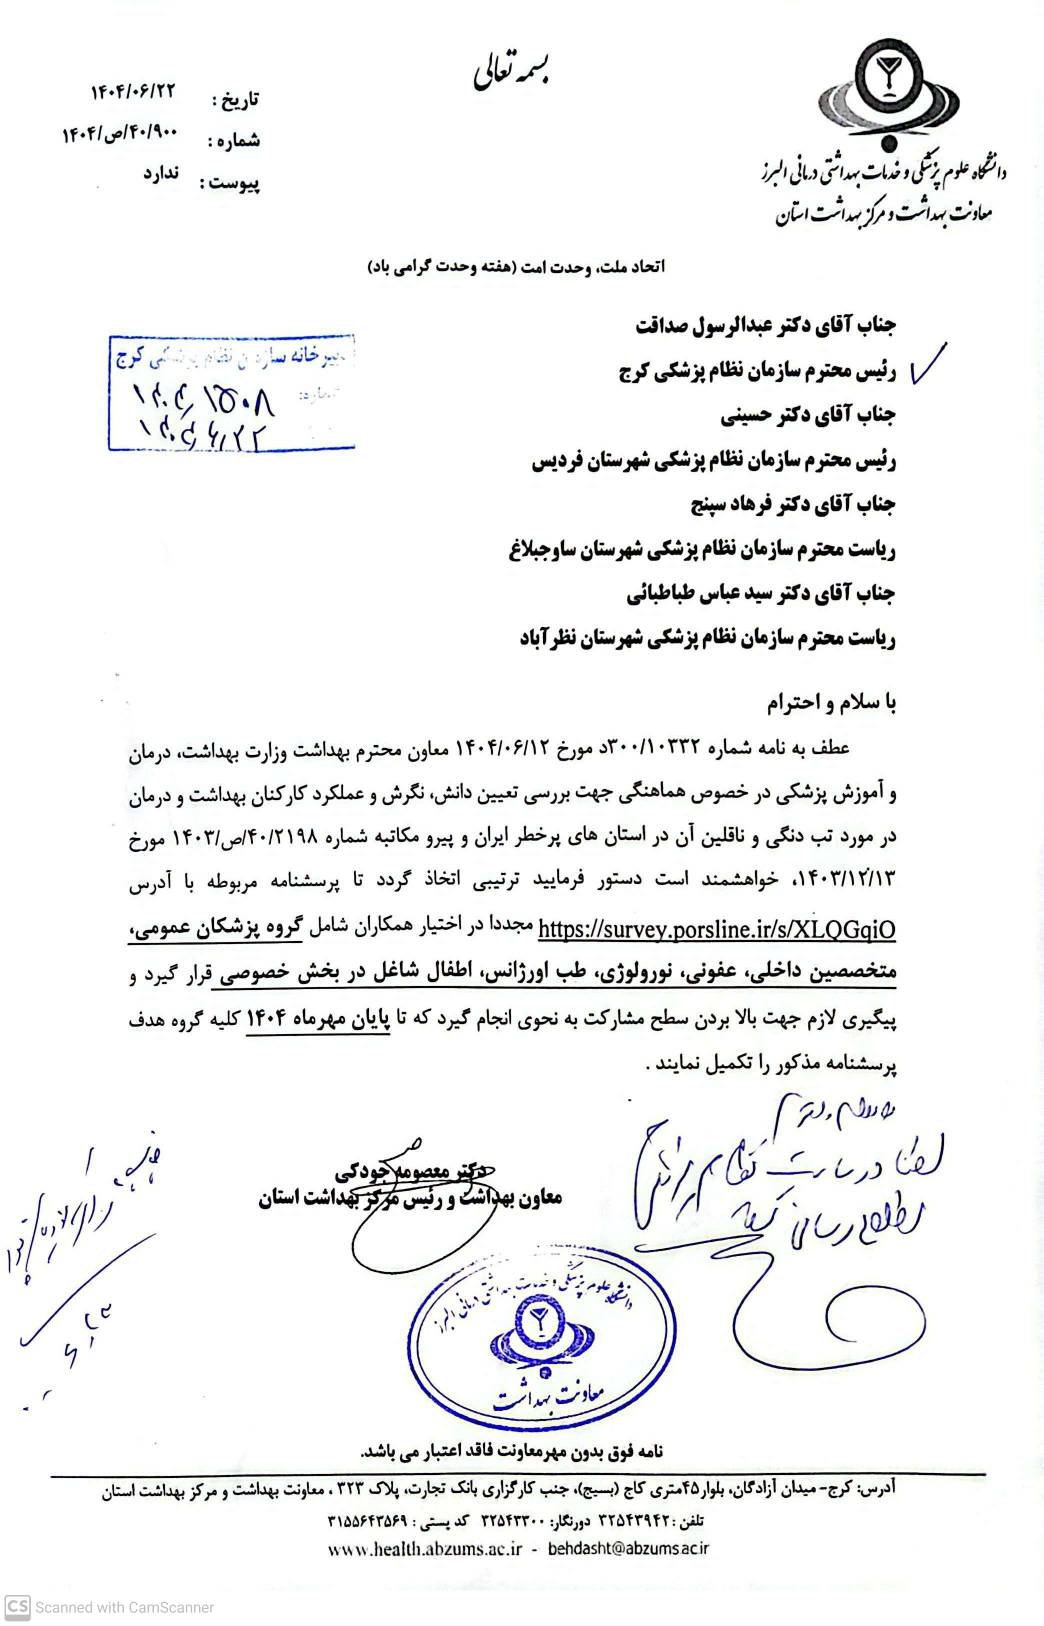 بسمه تعالی
دانشگاه علوم پزشکی و خدمات بهداشتی درمانی البرز
معاونت بهداشت و مرکز بهداشت استان
تاریخ : ۱۴۰۴/۰۶/۲۲
شماره : ۱۴۰۴/ص/۴۰/۹۰۰
پیوست : ندارد
اتحاد ملت، وحدت امت (هفته وحدت گرامی باد)
دبیرخانه سازمان نظام پزشکی کرج
شماره: ۱۴۰۴/۱۵۰۸
۱۴۰۴/۶/۲۲
جناب آقای دکتر عبدالرسول صداقت
رئیس محترم سازمان نظام پزشکی کرج
جناب آقای دکتر حسینی
رئیس محترم سازمان نظام پزشکی شهرستان فردیس
جناب آقای دکتر فرهاد سپنج
ریاست محترم سازمان نظام پزشکی شهرستان ساوجبلاغ
جناب آقای دکتر سید عباس طباطبائی
ریاست محترم سازمان نظام پزشکی شهرستان نظرآباد
با سلام و احترام
عطف به نامه شماره ۳۰۰/۱۰۳۳۲د مورخ ۱۴۰۴/۰۶/۱۲ معاون محترم بهداشت وزارت بهداشت، درمان
و آموزش پزشکی در خصوص هماهنگی جهت بررسی تعیین دانش، نگرش و عملکرد کارکنان بهداشت و درمان
در مورد تب دنگی و ناقلین آن در استان های پرخطر ایران و پیرو مکاتبه شماره ۴۰/۲۱۹۸/ص/۱۴۰۳ مورخ
۱۴۰۳/۱۲/۱۳، خواهشمند است دستور فرمایید ترتیبی اتخاذ گردد تا پرسشنامه مربوطه با آدرس
https://survey.porsline.ir/s/XLQGqiO مجددا در اختیار همکاران شامل گروه پزشکان عمومی،
متخصصین داخلی، عفونی، نورولوژی، طب اورژانس، اطفال شاغل در بخش خصوصی قرار گیرد و
پیگیری لازم جهت بالا بردن سطح مشارکت به نحوی انجام گیرد که تا پایان مهرماه ۱۴۰۴ کلیه گروه هدف
پرسشنامه مذکور را تکمیل نمایند .
لطفا در سایت نظام پزشکی
اطلاع رسانی
دکتر معصومه جودکی
معاون بهداشت و رئیس مرکز بهداشت استان
دانشگاه علوم پزشکی و خدمات بهداشتی درمانی البرز
معاونت بهداشت
نامه فوق بدون مهرمعاونت فاقد اعتبار می باشد.
آدرس: کرج- میدان آزادگان، بلوار۴۵متری کاج (بسیج)، جنب کارگزاری بانک تجارت، پلاک ۳۲۳ ، معاونت بهداشت و مرکز بهداشت استان
تلفن : ۳۲۵۴۳۹۴۲ دورنگار: ۳۲۵۴۳۳۰۰ کد پستی : ۳۱۵۵۶۴۳۵۶۹
www.health.abzums.ac.ir - behdasht@abzums.ac.ir
CS Scanned with CamScanner